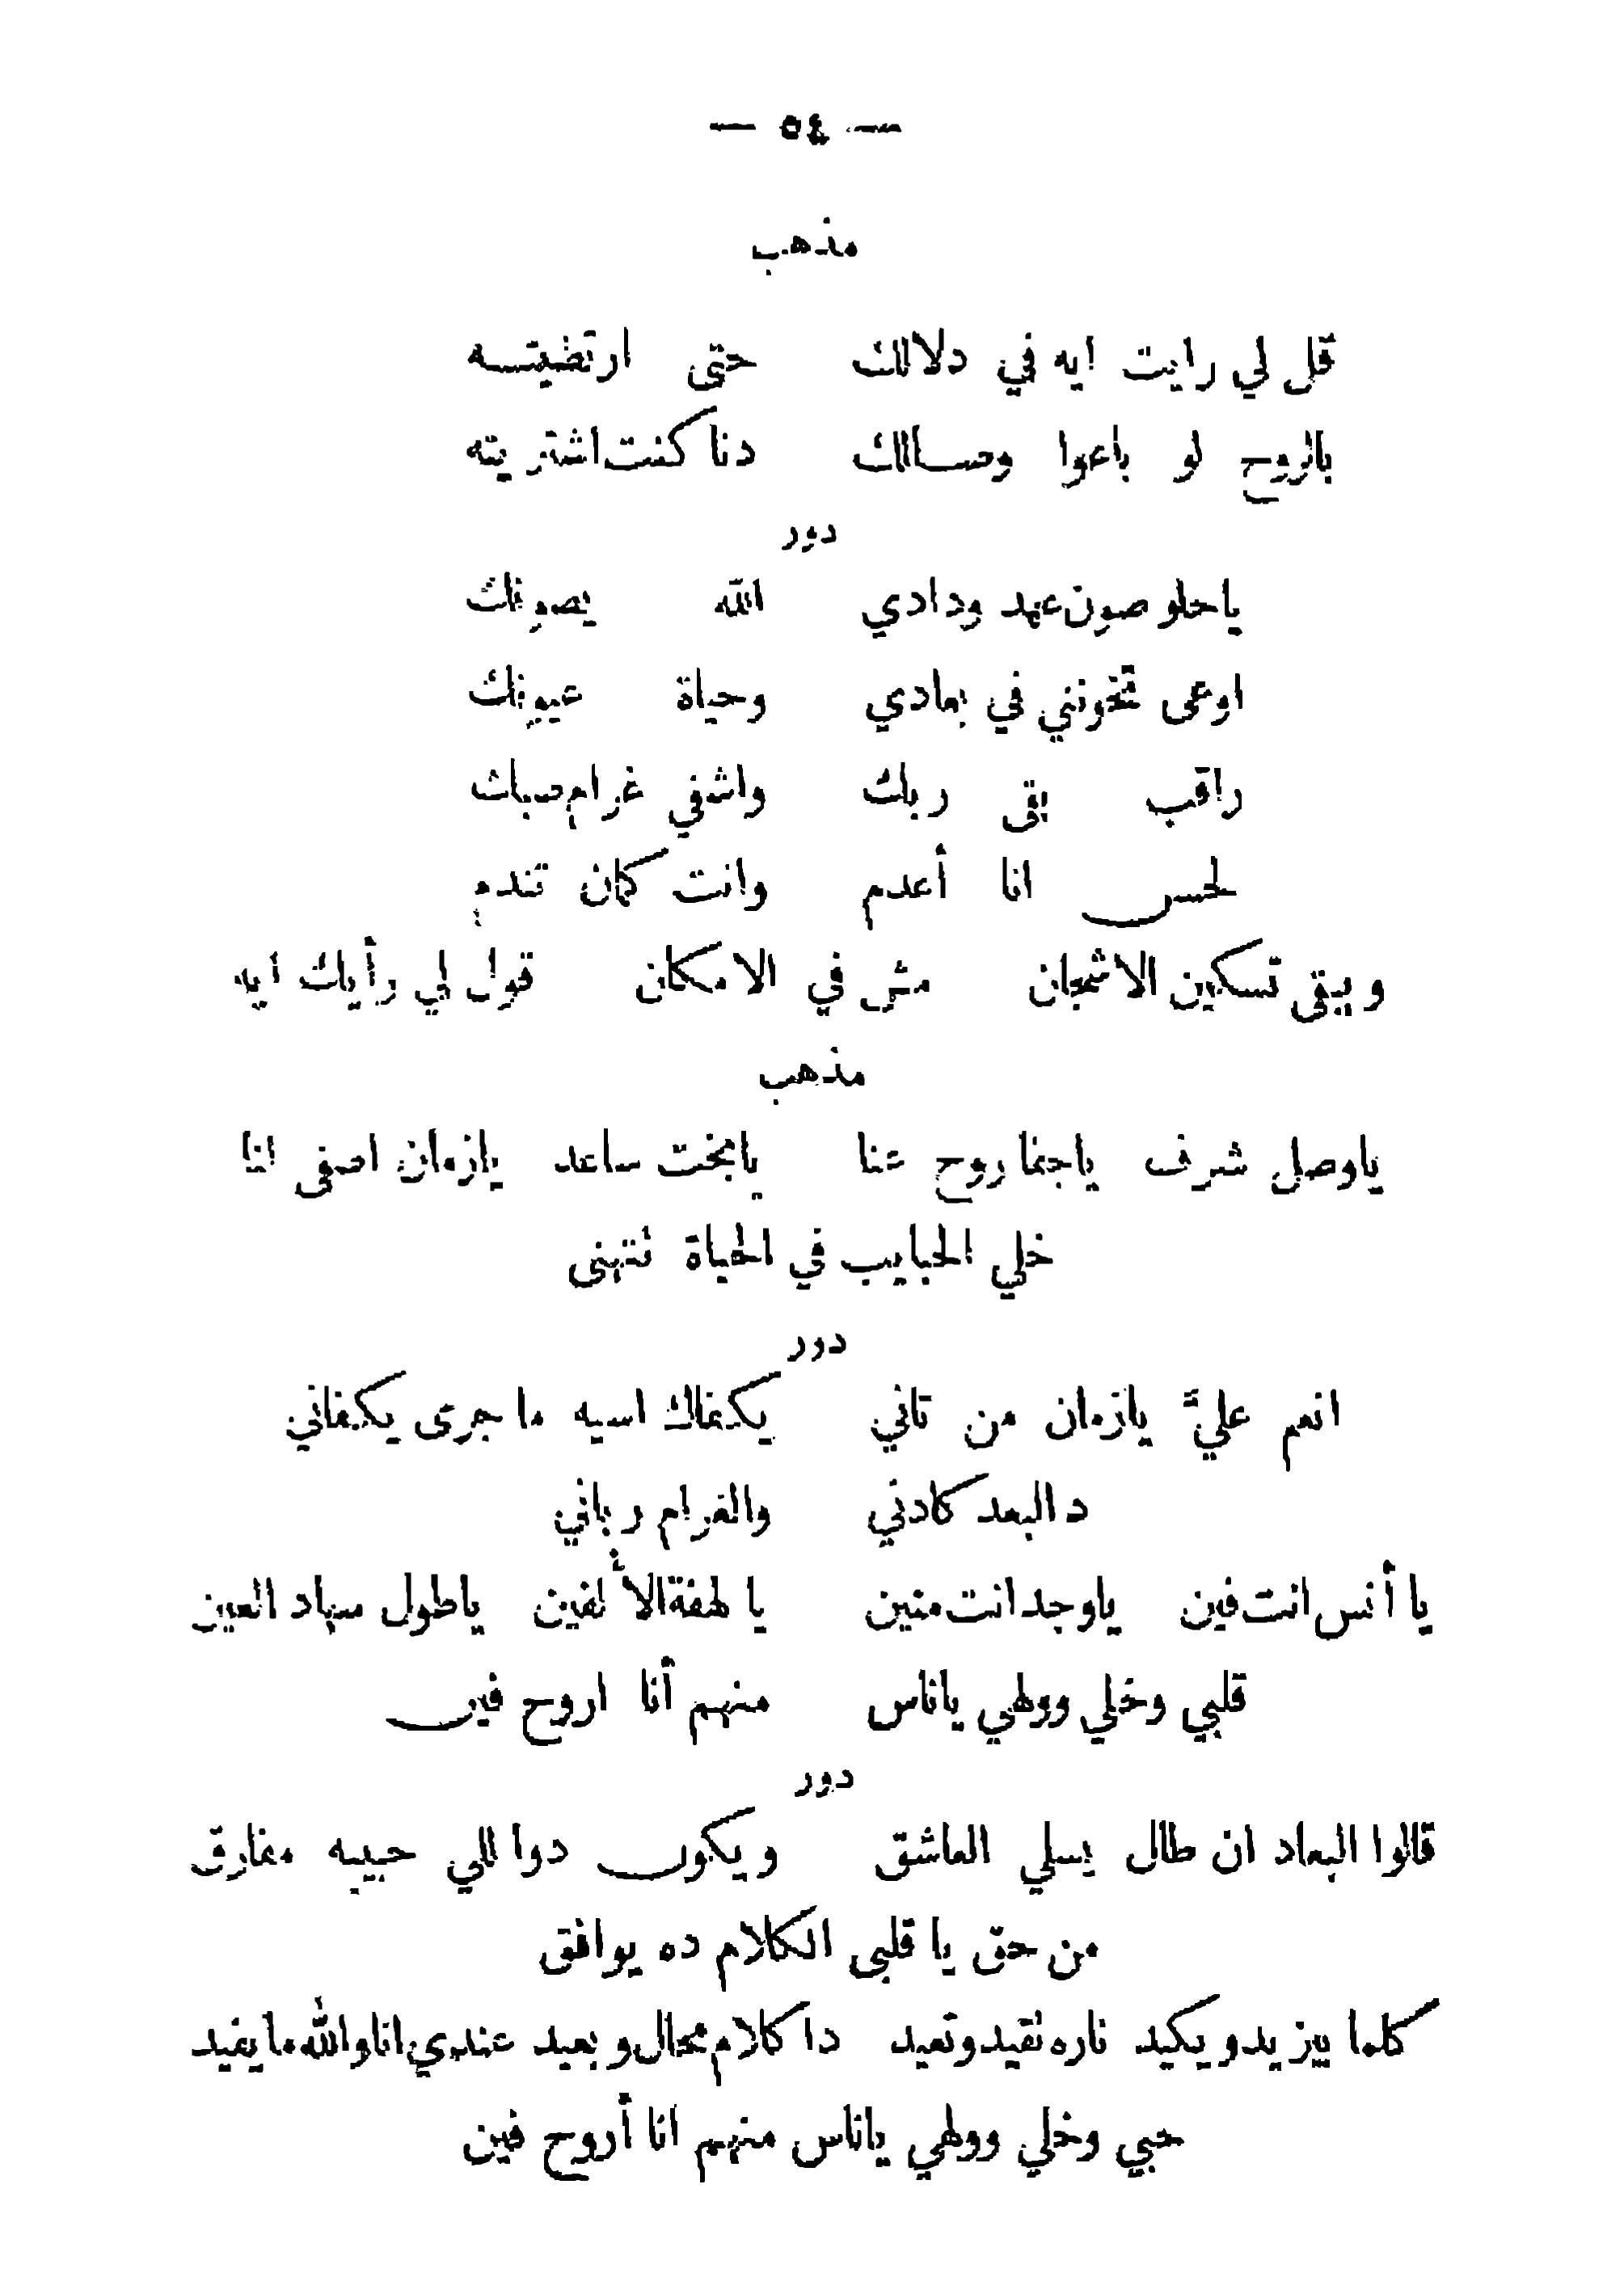 — ٥٤ —
مذهب
قل لي رايت ايه في دلالك حتى ارتضيتـــه
بالروح لو باعوا وصـــالك دنا كنت اشتريته
دور
ياحلو صون عهد ودادي الله يصونك
اوعى تخونني في بعادي وحياة عيونك
راقب بقى ربك واشفي غرام صبك
لحسن انا أعدم وانت كمان تندم
ويبقى تسكين الاشجان مش في الامكان قول لي رأيك ايه
مذهب
ياوصل شرف ياجفا روح عنا يابخت ساعد يازمان اصفى لنا
خلي الحبايب في الحياة نتهنى
دور
انعم عليَّ يازمان من تاني يكفاك اسيه ما جرى يكفاني
د البعد كادني والغرام رباني
يا أنس انت فين ياوجد انت منين يا لهفة الألفين ياطول سهاد العين
قلبي وخلي وولهي ياناس منهم أنا اروح فين
دور
قالوا البعاد ان طال يسلي العاشق ويكون دوا للي حبيبه مفارق
من حق يا قلبى الكلام ده يوافق
كلما بيزيد ويكيد ناره تقيد وتعيد دا كلام محال وبعيد عندي انا والله ما يفيد
حبي وخلي وولهي ياناس منهم انا أروح فين